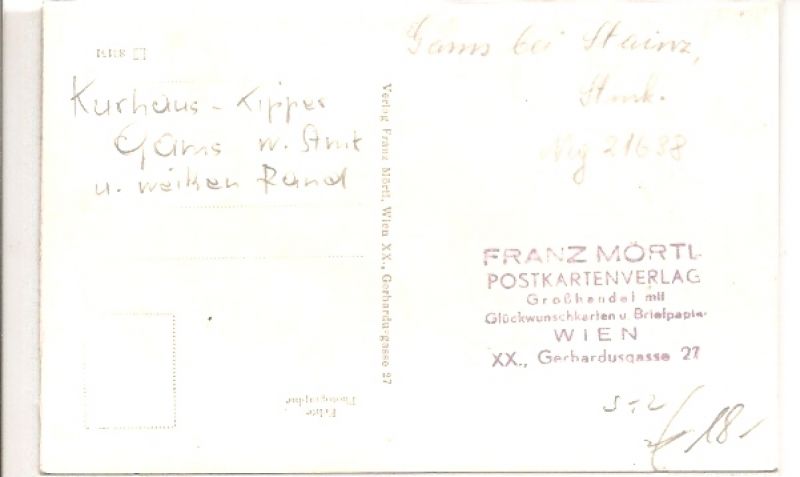 Gams bei Stainz,
Stmk.
21638
Kurhaus - Kipper
Gams w. Stmk
u. weißen Rand
Verlag Franz Mörtl, Wien XX., Gerhardus-gasse 27
FRANZ MÖRTL
POSTKARTENVERLAG
Großhandel mit
Glückwunschkarten u. Briefpapier
WIEN
XX., Gerhardusgasse 27
Echte
Photographie
18-